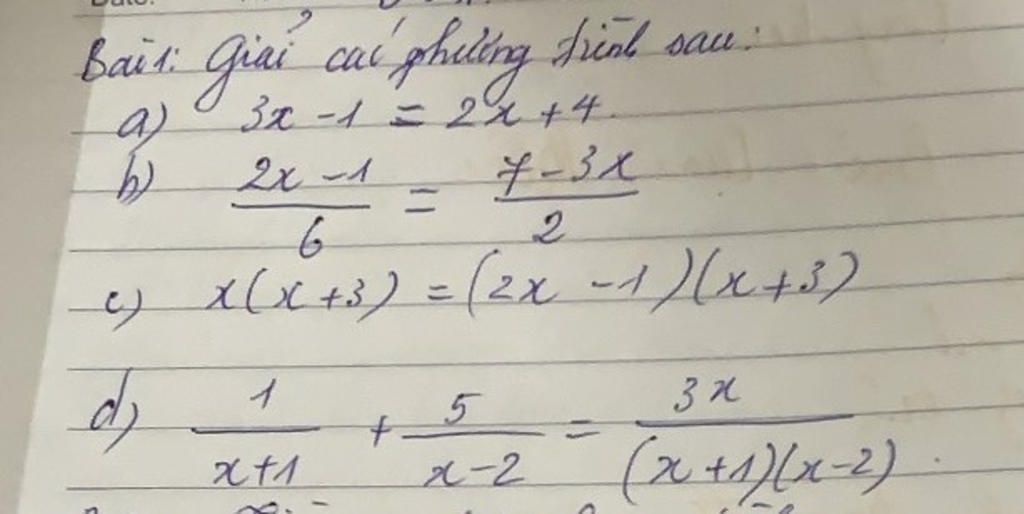 Bài 1: Giải các phương trình sau:
a) 3x - 1 = 2x + 4.
b) \frac{2x - 1}{6} = \frac{7 - 3x}{2}
c) x(x + 3) = (2x - 1)(x + 3)
d) \frac{1}{x+1} + \frac{5}{x-2} = \frac{3x}{(x+1)(x-2)}.